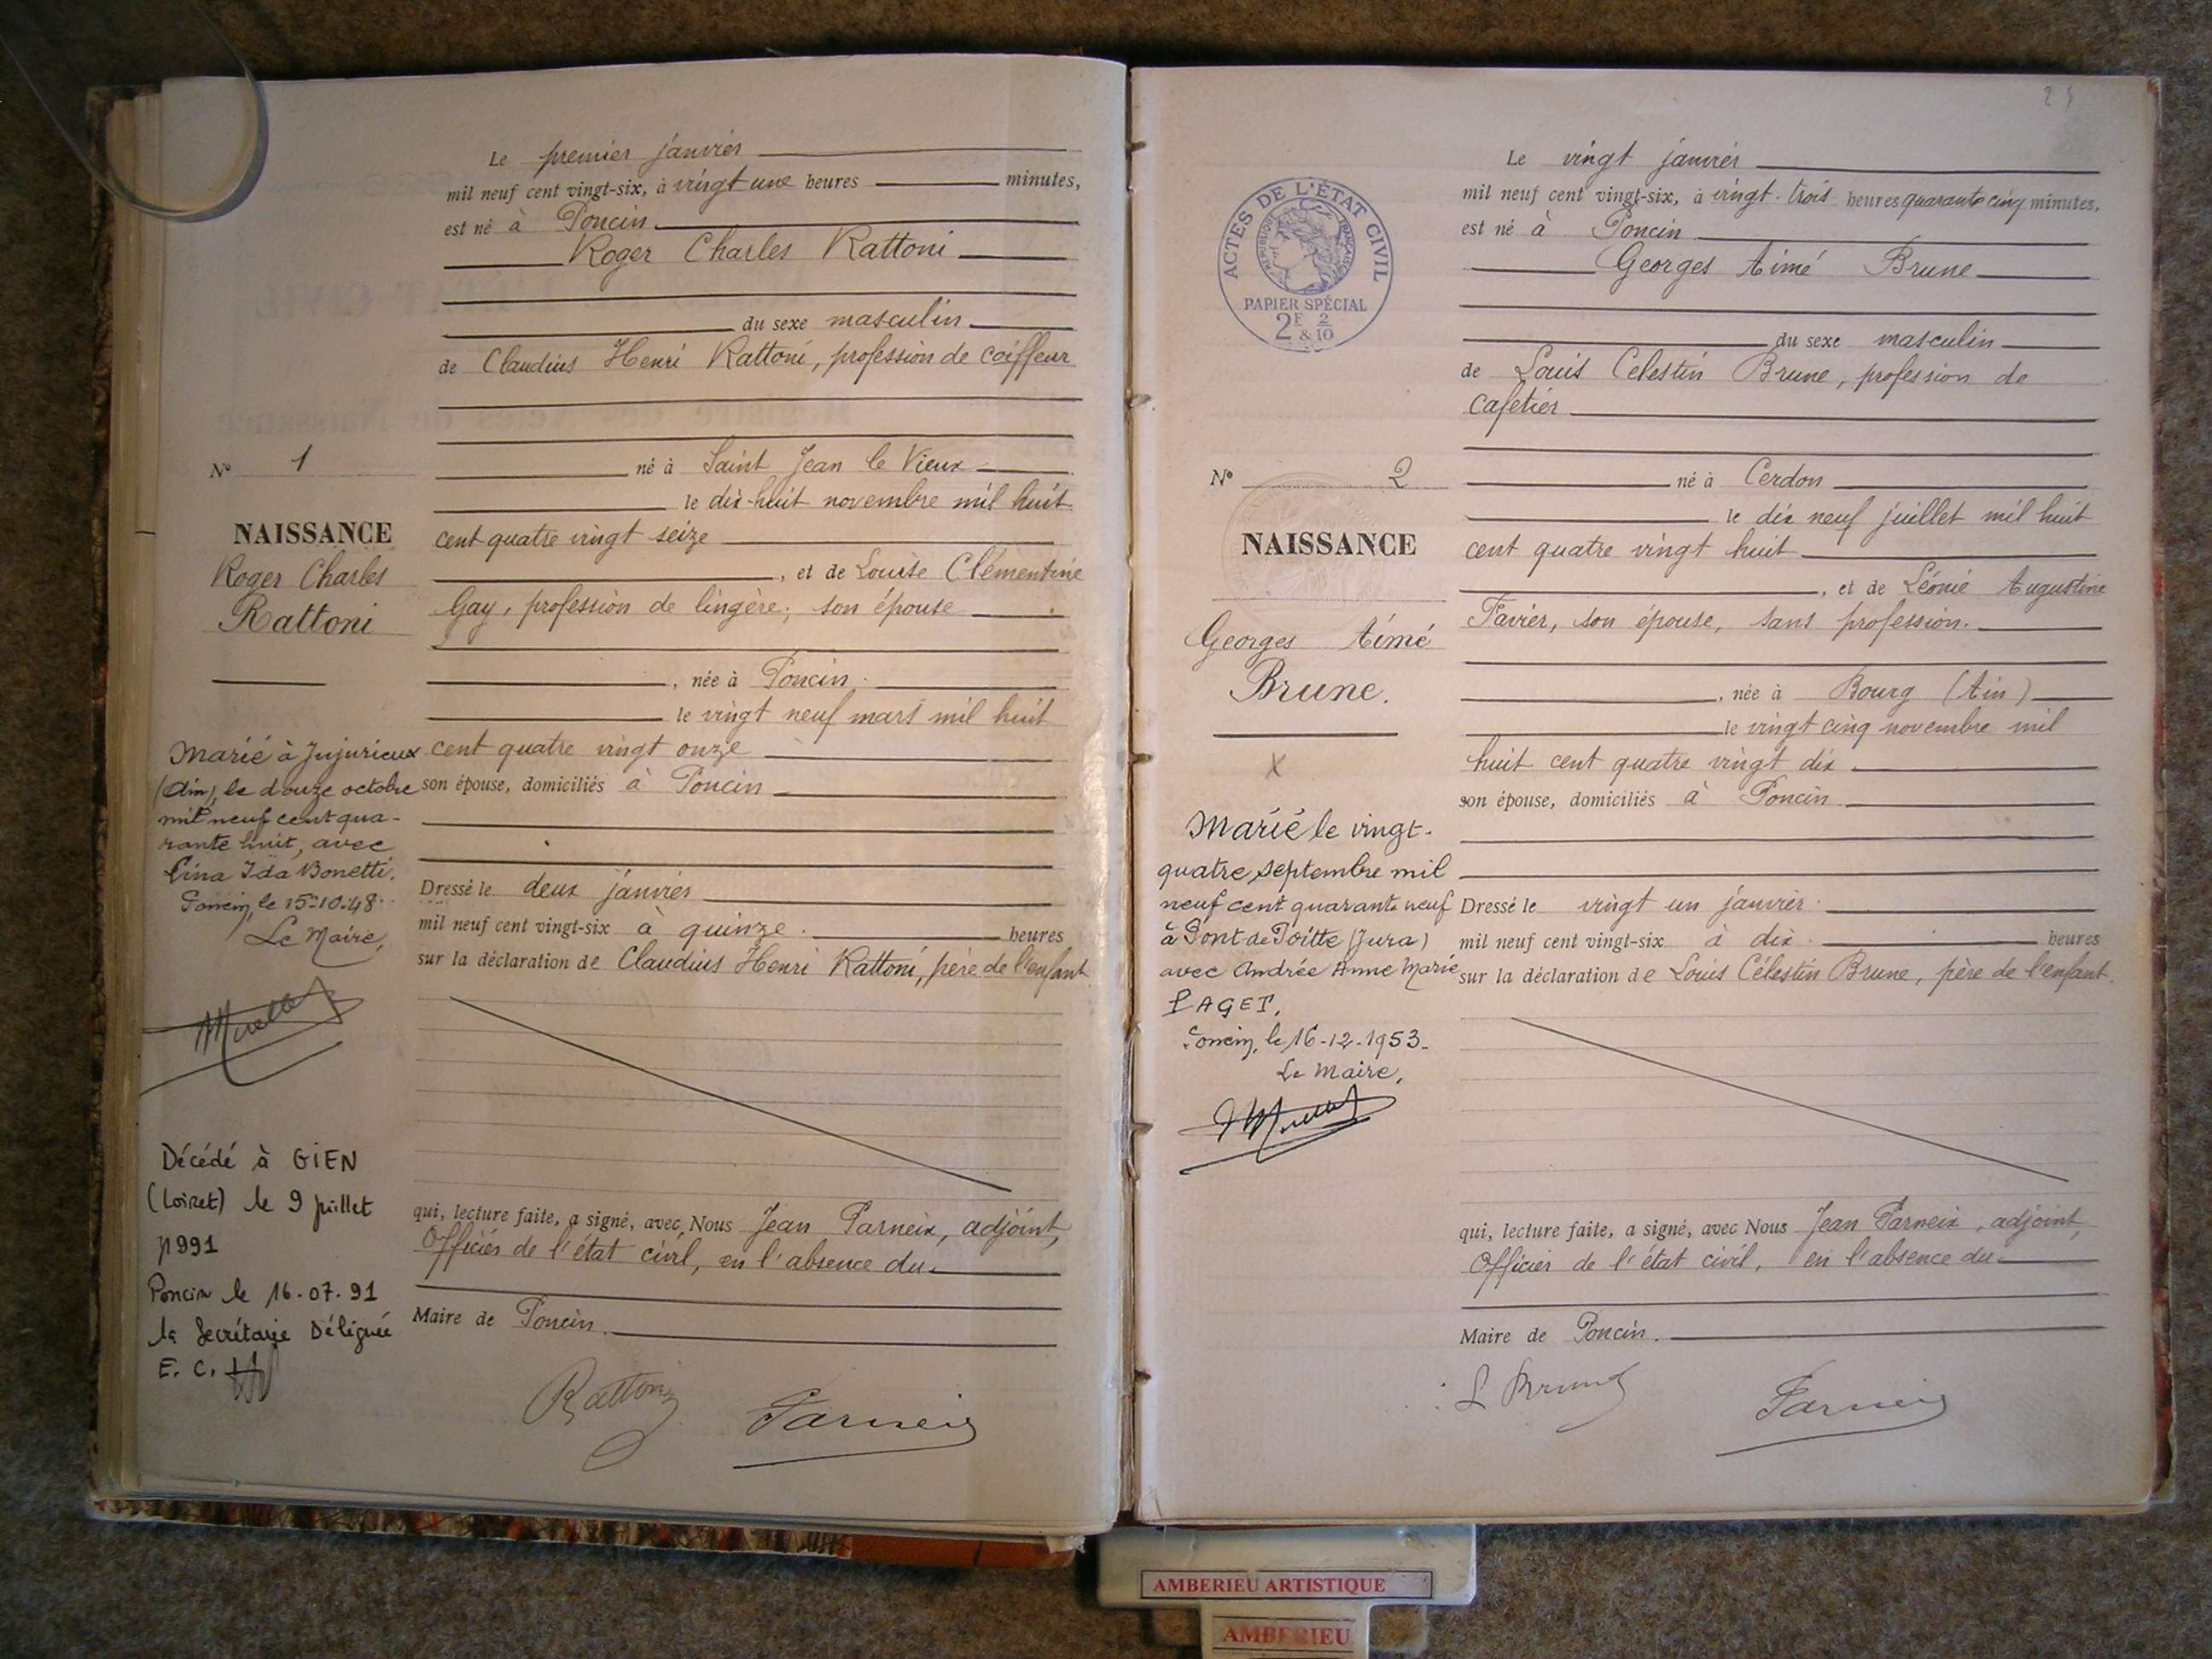 Le premier janvier
mil neuf cent vingt-six, à vingt une heures minutes,
est né à Poncin
Roger Charles Rattoni
du sexe masculin
de Claudius Henri Rattoni, profession de coiffeur
né à Saint Jean le Vieux
le dix-huit novembre mil huit
cent quatre vingt seize
, et de Louise Clémentine
Gay, profession de lingère, son épouse
, née à Poncin
le vingt neuf mars mil huit
cent quatre vingt onze
son épouse, domiciliés à Poncin
Dressé le deux janvier
mil neuf cent vingt-six à quinze heures
sur la déclaration de Claudius Henri Rattoni, père de l'enfant
qui, lecture faite, a signé, avec Nous Jean Parneix, adjoint,
Officier de l'état civil, en l'absence du
Maire de Poncin
Rattoni
Parneix
No 1
NAISSANCE
Roger Charles
Rattoni
Marié à Jujurieux
(Ain), le douze octobre
mil neuf cent qua-
rante huit, avec
Lina Ida Bonetti.
Poncin, le 15-10-48.
Le Maire,
Décédé à GIEN
(Loiret) le 9 juillet
1991
Poncin le 16.07.91
la Secrétaire Déléguée
E. C.
24
ACTES DE L'ÉTAT CIVIL
REPUBLIQUE FRANÇAISE
PAPIER SPÉCIAL
2F & 2/10
Le vingt janvier
mil neuf cent vingt-six, à vingt-trois heures quarante cinq minutes,
est né à Poncin
Georges Aimé Brune
du sexe masculin
de Louis Celestin Brune, profession de
cafetier
né à Cerdon
le dix neuf juillet mil huit
cent quatre vingt huit
, et de Léonie Augustine
Favier, son épouse, sans profession.
, née à Bourg (Ain)
le vingt cinq novembre mil
huit cent quatre vingt dix
son épouse, domiciliés à Poncin
Dressé le vingt un janvier
mil neuf cent vingt-six à dix heures
sur la déclaration de Louis Célestin Brune, père de l'enfant.
qui, lecture faite, a signé, avec Nous Jean Parneix, adjoint,
Officier de l'état civil, en l'absence du
Maire de Poncin.
L Brune
Parneix
No 2
NAISSANCE
Georges Aimé
Brune.
X
Marié le vingt-
quatre septembre mil
neuf cent quarante neuf
à Pont de Poitte (Jura)
avec Andrée Anne Marie
PAGET.
Poncin, le 16-12-1953.
Le Maire,
AMBERIEU ARTISTIQUE
AMBERIEU